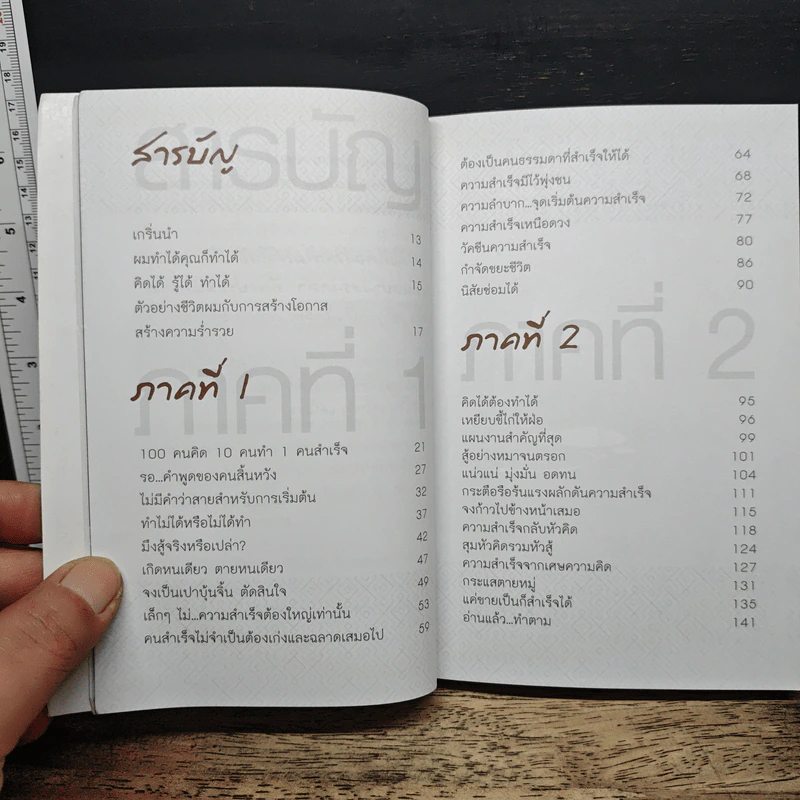 สารบัญ
เกริ่นนำ 13
ผมทำได้คุณก็ทำได้ 14
คิดได้ รู้ได้ ทำได้ 15
ตัวอย่างชีวิตผมกับการสร้างโอกาส
สร้างความร่ำรวย 17
ภาคที่ 1
100 คนคิด 10 คนทำ 1 คนสำเร็จ 21
รอ...คำพูดของคนสิ้นหวัง 27
ไม่มีคำว่าสายสำหรับการเริ่มต้น 32
ทำไม่ได้หรือไม่ได้ทำ 37
มึงสู้จริงหรือเปล่า? 42
เกิดหนเดียว ตายหนเดียว 47
จงเป็นเปาบุ้นจิ้น ตัดสินใจ 49
เล็กๆ ไม่...ความสำเร็จต้องใหญ่เท่านั้น 53
คนสำเร็จไม่จำเป็นต้องเก่งและฉลาดเสมอไป 59
ต้องเป็นคนธรรมดาที่สำเร็จให้ได้ 64
ความสำเร็จมีไว้พุ่งชน 68
ความลำบาก...จุดเริ่มต้นความสำเร็จ 72
ความสำเร็จเหนือดวง 77
วัคซีนความสำเร็จ 80
กำจัดขยะชีวิต 86
นิสัยซ่อมได้ 90
ภาคที่ 2
คิดได้ต้องทำได้ 95
เหยียบขี้ไก่ให้ฝ่อ 96
แผนงานสำคัญที่สุด 99
สู้อย่างหมาจนตรอก 101
แน่วแน่ มุ่งมั่น อดทน 104
กระตือรือร้นแรงผลักดันความสำเร็จ 111
จงก้าวไปข้างหน้าเสมอ 115
ความสำเร็จกลับหัวคิด 118
สุมหัวคิดรวมหัวสู้ 124
ความสำเร็จจากเศษความคิด 127
กระแสตายหมู่ 131
แค่ขายเป็นก็สำเร็จได้ 135
อ่านแล้ว...ทำตาม 141